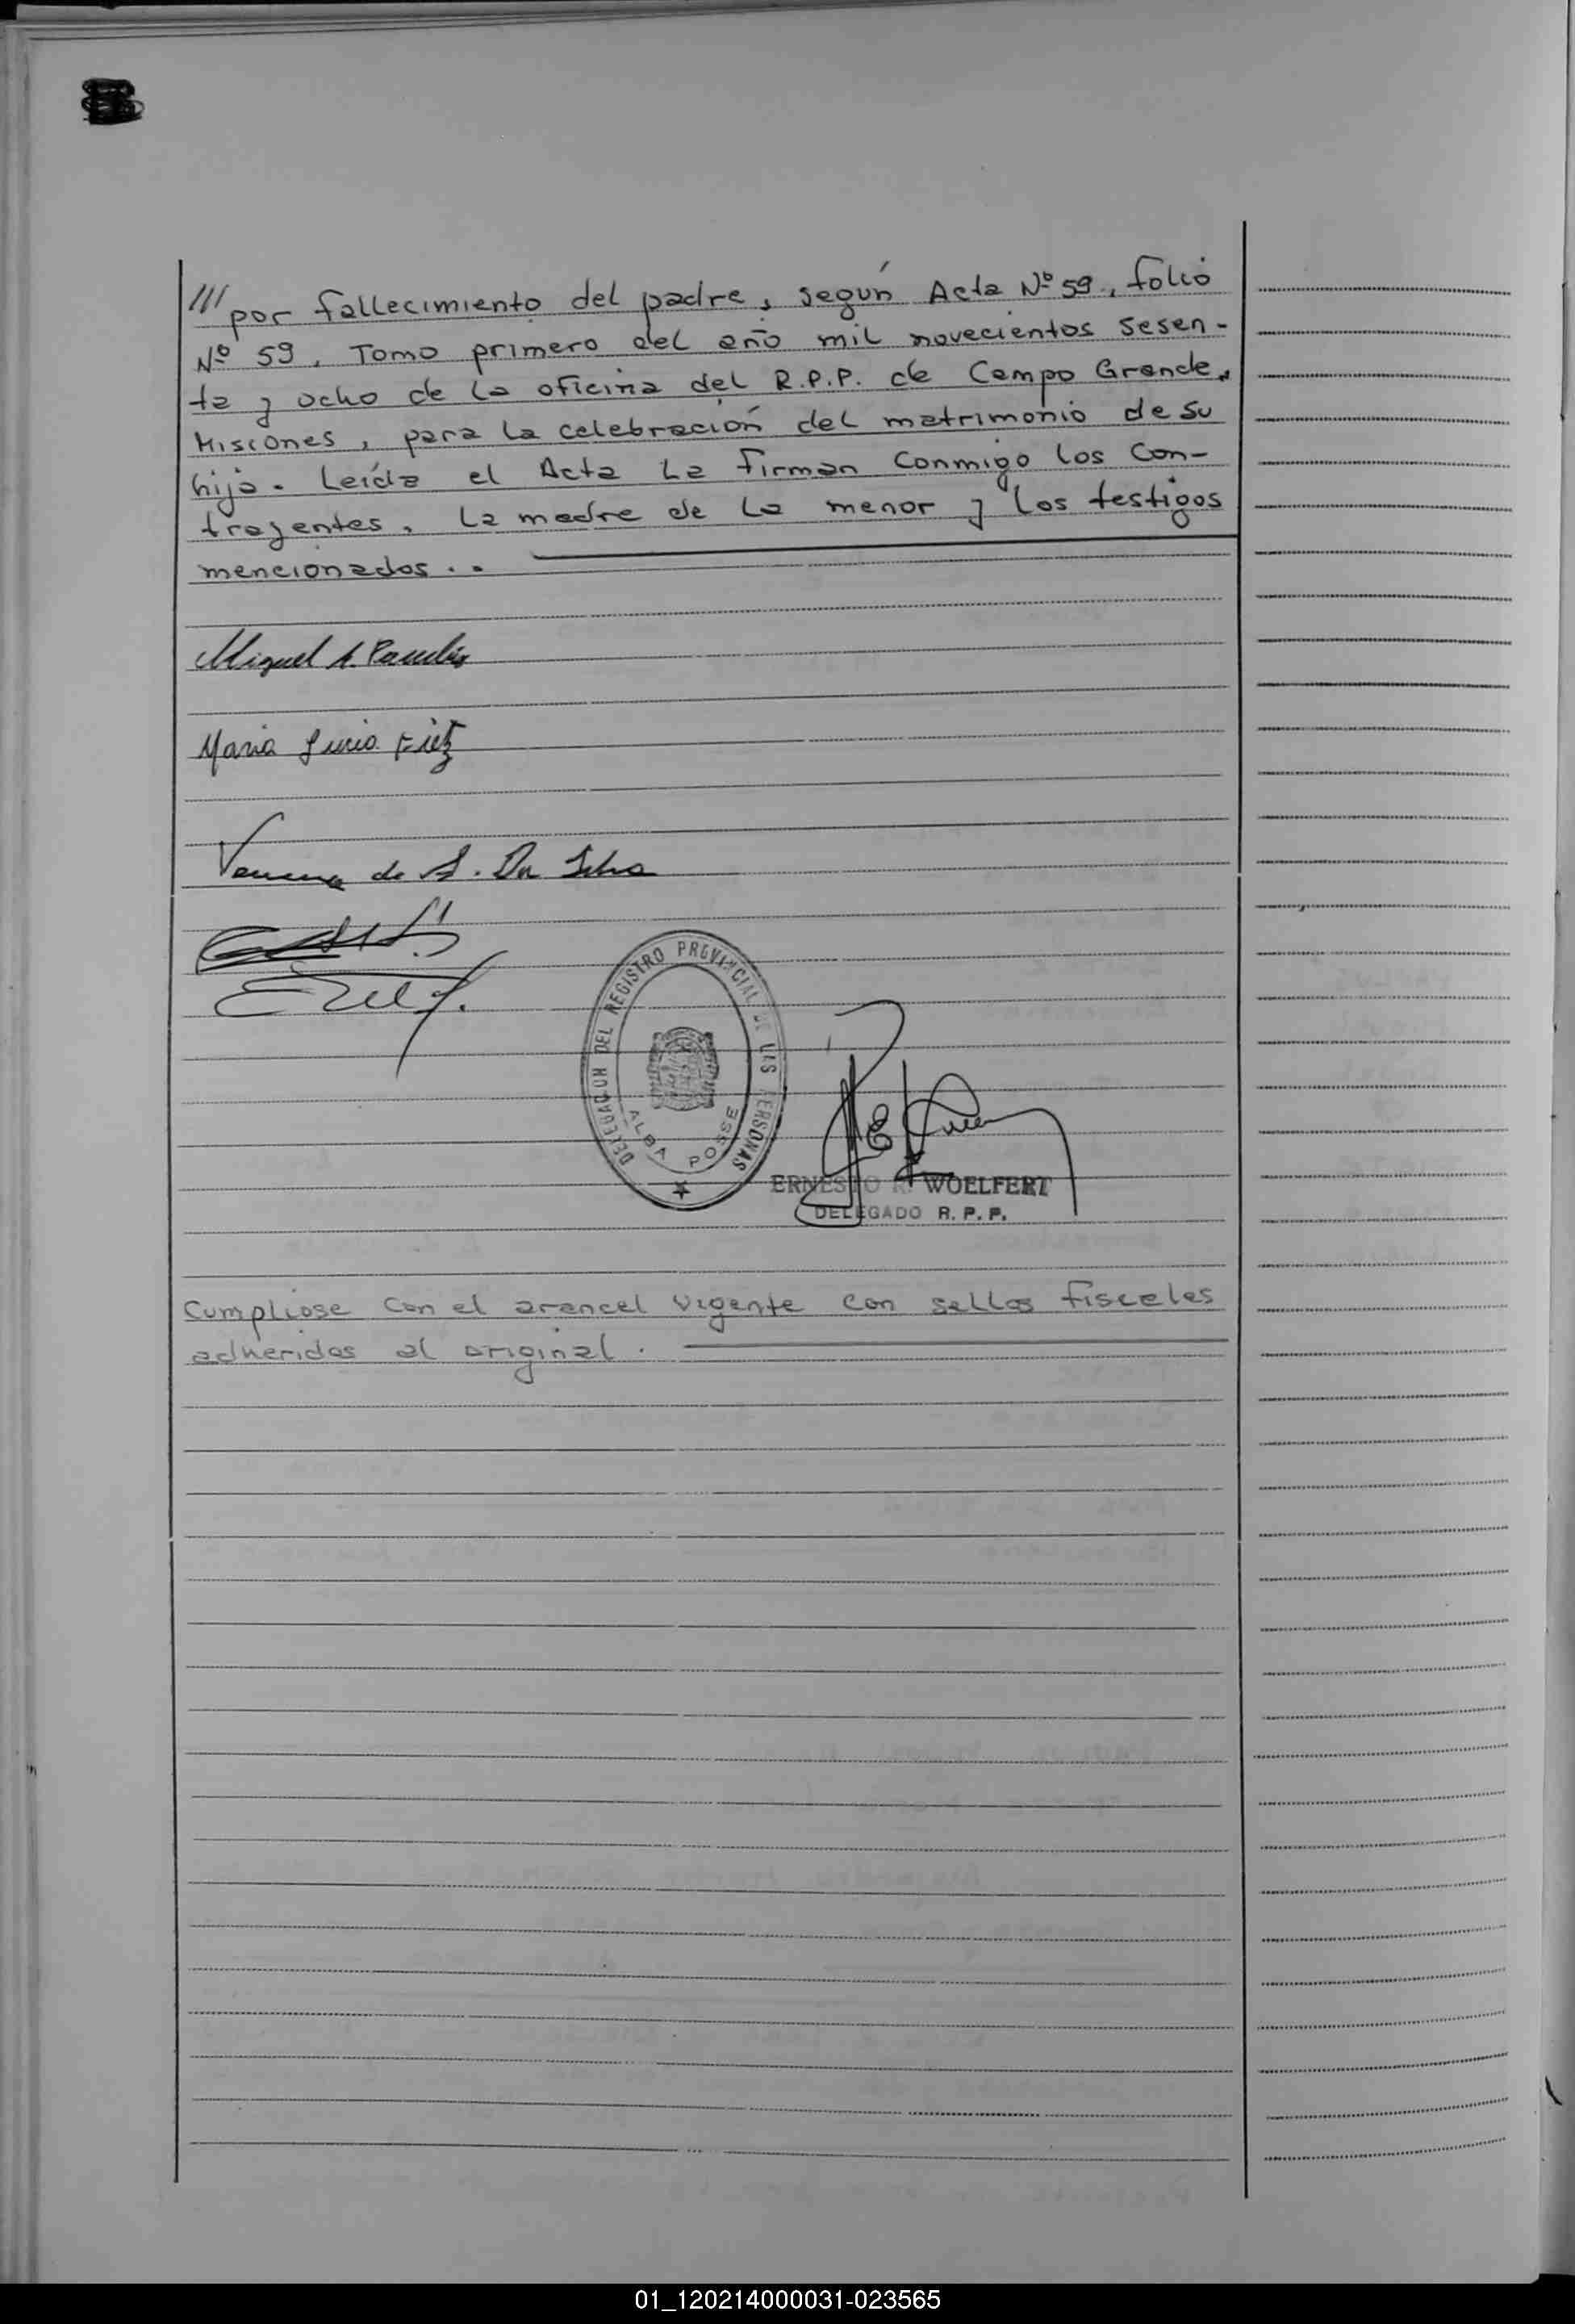 /// por fallecimiento del padre, según Acta Nº 59, folio
Nº 59, Tomo primero del año mil novecientos sesen-
ta y ocho de la oficina del R.P.P. de Campo Grande,
Misiones, para la celebración del matrimonio de su
hija. Leída el Acta La firman Conmigo los Con-
trayentes, La madre de La menor y los testigos
mencionados..
Miguel A.
Maria Lucia Fietz
de A. Da Silva
DELEGACION DEL REGISTRO PROVINCIAL DE LAS PERSONAS
ALBA POSSE
ERNESTO R. WOELFERT
DELEGADO R. P. P.
Cumpliose Con el arancel Vigente con sellos fiscales
adheridos al original.
01_120214000031-023565